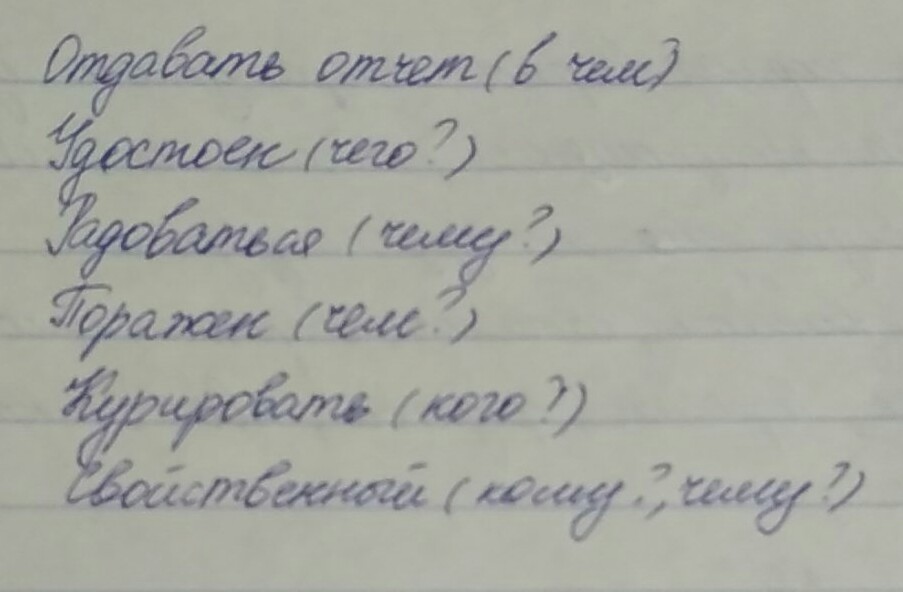 Отдавать отчет (в чем?)
Удостоен (чего?)
Радоваться (чему?)
Поражен (чем?)
Курировать (кого?)
Свойственный (кому?, чему?)